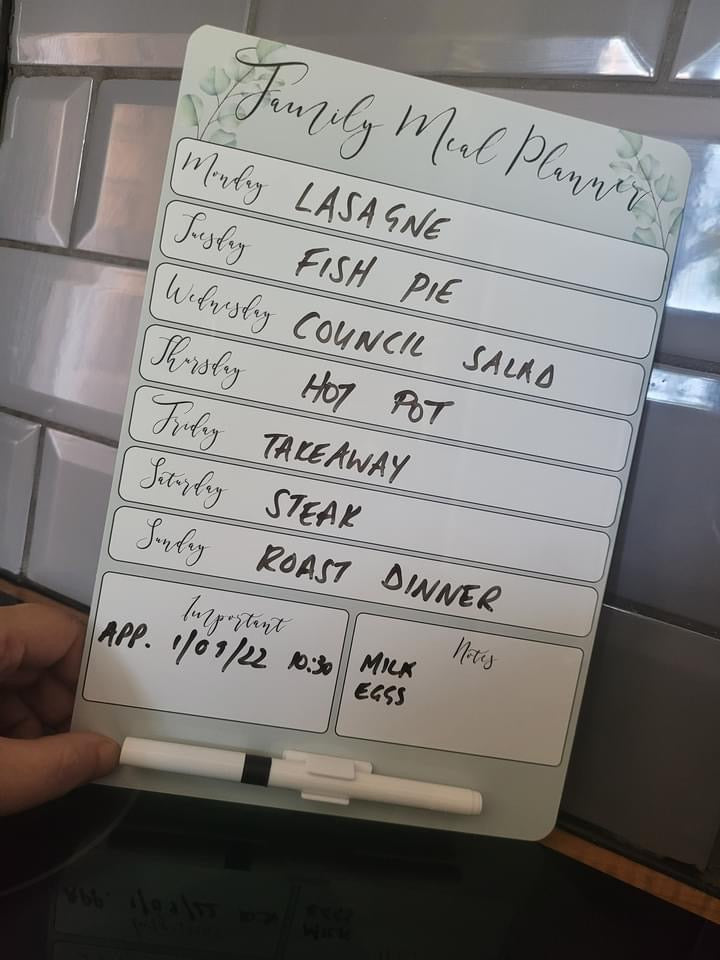 Family Meal Planner
Monday LASAGNE
Tuesday FISH PIE
Wednesday COUNCIL SALAD
Thursday HOT POT
Friday TAKEAWAY
Saturday STEAK
Sunday ROAST DINNER
Important
APP. 1/09/22 10:30
Notes
MILK
EGGS